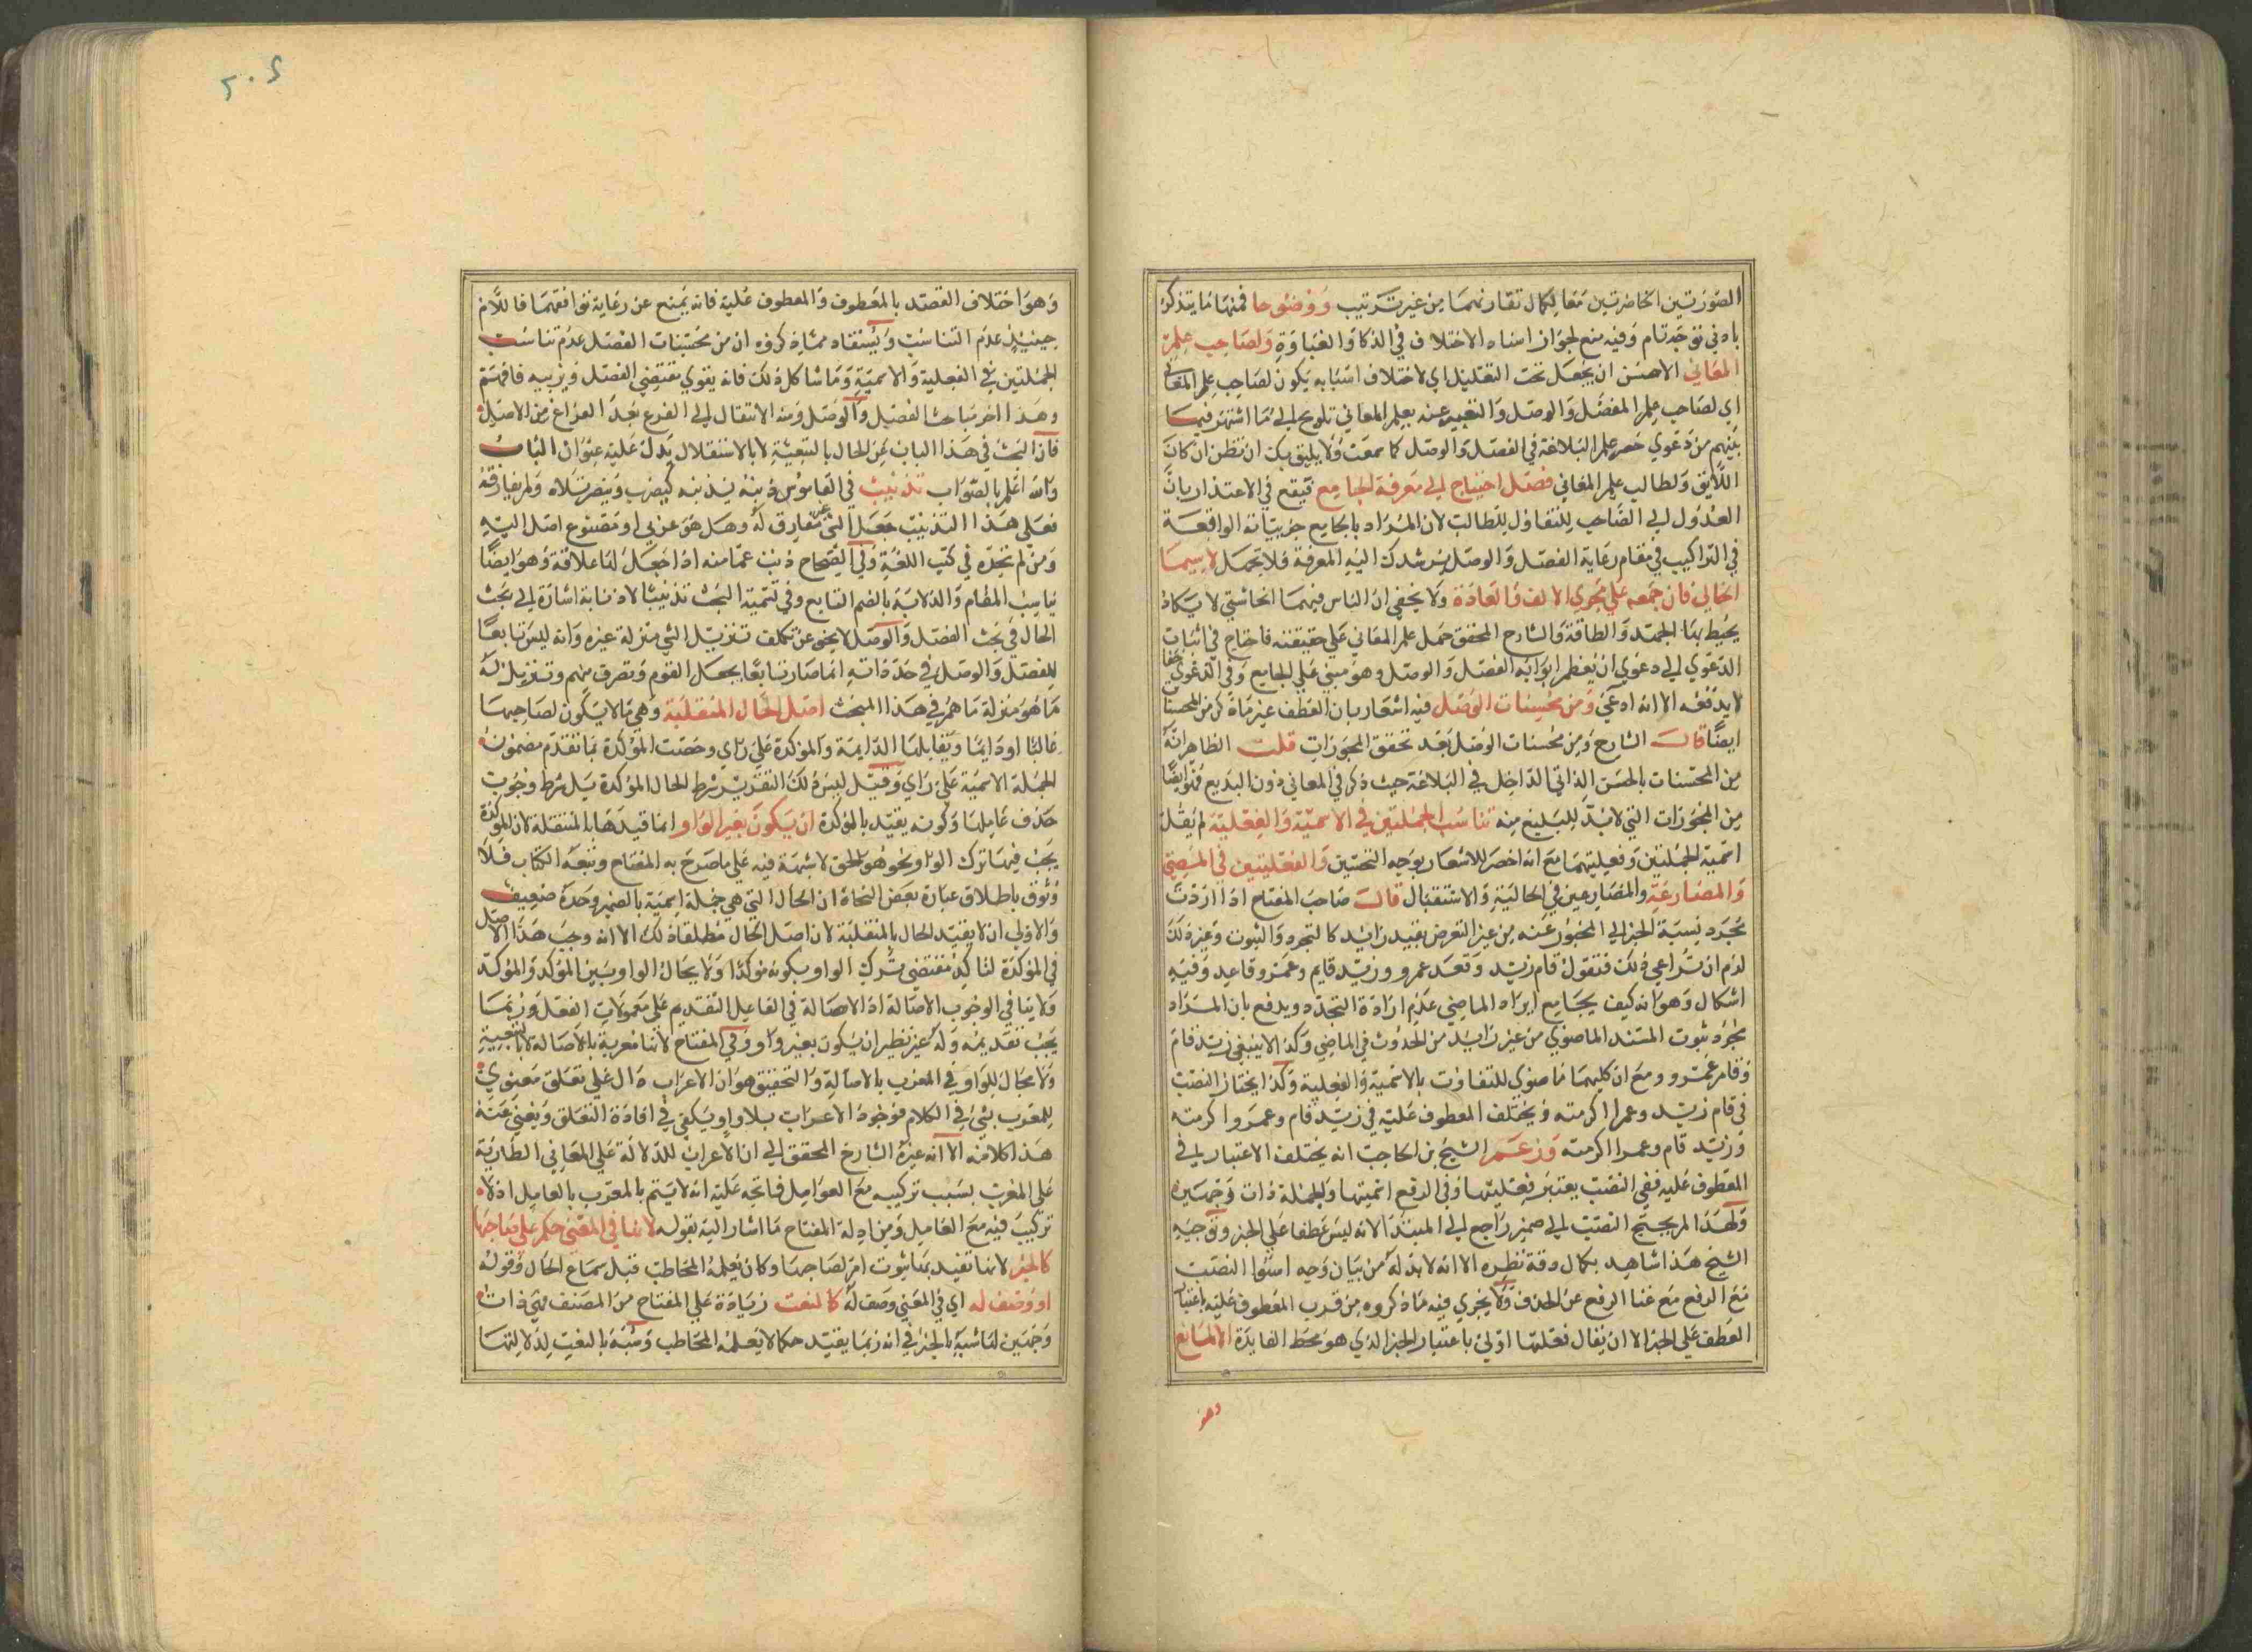 الصورتين الحاضرتين معا لكمال تقارنهما من غير ترتيب ووضوحا فمنها ما يتذكر
بادني توجه تام وفيه منع لجواز اسناد الاختلاف في الذكا والغباوة ولصاحب علم
المعاني الاحسن ان يجعل تحت التعليل اي لاختلاف اسبابه يكون لصاحب علم المعاني
اي لصاحب علم الفصل والوصل والتعبير عنه بعلم المعاني تلويح الي ما اشتهر فيما
بينهم من دعوي حصر علم البلاغة في الفصل والوصل كما سمعت ولا يليق بك ان تظن ان كان
اللايق ولطالب علم المعاني فضل احتياج الي معرفة الجامع فيقع في الاعتذار بان
العدول الي الصاحب للتفاؤل للطالب لان المراد بالجامع جزيياته الواقعة
في التراكيب في مقام رعاية الفصل والوصل يرشدك اليه المعرفة فلا تجهل لا سيما
الخيالي فان جمعه علي مجري الالف والعادة ولا يخفي ان الناس فيهما انحا شتي لا يكاد
يحيط بها الجهد والطاقة والشارح المحقق حمل علم المعاني علي حقيقته فاحتاج في اثبات
الدعوي الي دعوي ان معظم ابوابه الفصل والوصل وهو مبني علي الجامع وفي الدعوي خفا
لا يدفعه الا انه ادعي ومن محسنات الوصل فيه اشعار بان العطف غير ما ذكر من المحسنات
ايضا قال الشارح ومن محسنات الوصل بعد تحقق المجوزات قلت الظاهر انه
من المحسنات بالحسن الذاتي الداخل في البلاغة حيث ذكر في المعاني دون البديع فهو ايضا
من المجوزات التي لا بد للبليغ منه تناسب الجملتين في الاسمية والفعلية لم يقل
اسمية الجملتين وفعليتهما مع انه اخصر للاشعار بوجه التحسين والفعليتين في المضي
والمضارعة والمضارعين في الحالية والاستقبال قال صاحب المفتاح اذا اردت
مجرد نسبة الخبر الي المخبور عنه من غير التعرض بقيد زائد كالتجرد والثبوت وغير ذلك
لزم ان تراعي ذلك فتقول قام زيد وقعد عمرو وزيد قايم وعمرو قاعد وفيه
اشكال وهو انه كيف يجامع ايراد الماضي عدم ارادة التجدد ويدفع بان المراد
مجرد ثبوت المسند الماضوي من غير زايد من الحدوث في الماضي وكذا لا ينبغي زيد قام
وقام عمرو ومع ان كليهما ماضوي للتفاوت بالاسمية والفعلية وكذا يختار النصب
في قام زيد وعمرا اكرمته ويختلف المعطوف عليه في زيد قام وعمرو اكرمته
وزيد قام وعمرا اكرمته وزعم الشيخ بن الحاجب انه يختلف الاعتبار في
المعطوف عليه ففي النصب يعتبر فعليتها وفي الرفع اسميتها والجملة ذات وجهين
ولهذا لم يحتج النصب الي ضمير راجع الي المبتدا لانه ليس عطفا علي الخبر وتوجيه
الشيخ هذا شاهد بكمال دقة نظره الا انه لا بد له من بيان وجه استوا النصب
مع الرفع مع غنا الرفع عن الحذف ولا يجري فيه ما ذكروه من قرب المعطوف عليه باعتبار
العطف علي الخبر الا ان يقال فعليتها اولي باعتبار الخبر الذي هو محط الفايدة الا لمانع
وهو
٢٠٤
وهو اختلاف القصد بالمعطوف والمعطوف عليه فانه يمنع عن رعاية توافقهما فاللازم
حينيذ عدم التناسب ويستفاد مما ذكروه ان من محسنات الفصل عدم تناسب
الجملتين في الفعلية والاسمية وما شاكل ذلك فانه يقوي مقتضي الفصل ويزيبه فافهم
وهذا اخر مباحث الفصل والوصل ومنه الانتقال الي الفرع بعد الفراغ من الاصل
فان البحث في هذا الباب عن الحال بالتبعية لا بالاستقلال يدلك عليه عنوان الباب
والله اعلم بالصواب تذنيب في القاموس ذنبه يذنبه كيضرب وينصر تلاه ولم يفارقه
فعلي هذا التذنيب جعل الشي غير مفارق له وهل هو عربي او مصنوع اهل البيه
ومن لم نجده في كتب اللغة وفي الصحاح ذنب عمامته اذا جعل لها علاقة وهو ايضا
يناسب المقام والذنابة بالضم التابع وفي تسمية البحث تذنيبا لا ذنابة اشارة الي بحث
الحال في بحث الفصل والوصل لا يخلو عن تكلف تنزيل الشي منزلة غيره وانه ليس تابعا
للفصل والوصل في حد ذاته انما صار تابعا بجعل القوم وتصرف منهم وتنزيل له
ما هو منزلة ما هم في هذا المبحث اصل الحال المنتقلة وهي ما لا يكون لصاحبها
غالبا او دايما ويقابلها الدايمة والمؤكدة علي راي وخصت المؤكدة بما تقدم مضمونه
الجملة الاسمية علي راي وقيل ليس ذلك التقرير شرط الحال المؤكدة بل شرط وجوب
حذف عاملها وكونه يقيد بالمؤكدة ان يكون بغير الواو وانما قيدها بالمنتقلة لان المؤكدة
يجب فيها ترك الواو نحو هو الحق لا شبهة فيه علي ما صرح به المفتاح وتبعه الكتاب فلا
وثوق باطلاق عبارة بعض النحاة ان الحال التي هي جملة اسمية بالضمير وحده ضعيف
والاولي ان لا يقيد الحال بالمنتقلة لان اصل الحال مطلقا ذلك الا انه وجب هذا الاصل
في المؤكدة لتاكيد مقتضي ترك الواو بكونه مؤكدا ولا يحال الواو بين المؤكد والمؤكد
ولا ينافي الوجوب الاصالة اذ الاصالة في الفاعل التقديم علي معمولات الفعل وربما
يجب تقديمه وله غير نظير ان يكون بغير واو وفي المفتاح لانها معربة بالاصالة لا بالتبعية
ولا مجال للواو في المعرب بالاصالة والتحقيق هو ان الاعراب دال علي تعلق معنوي
للمعرب بشي في الكلام فوجود الاعراب بلا واو يكفي في افادة التعلق ويغني عنه
هذا كلامه الا انه غيره الشارح المحقق الي ان الاعراب للدلالة علي المعاني الطارية
علي المعرب بسبب تركيبه مع العوامل فاتجه عليه انه لا يتم بالمعرب بالعامل اذ لا
تركيب فيه مع العامل ومن ادلة المفتاح ما اشار اليه بقوله لانها في المعني حكم علي صاحبها
كالخبر لانها تفيد بها ثبوت امر لصاحبها وكان يعلمه المخاطب قبل سماع الحال وقوله
او وصف له اي في المعني وصف له كالنعت زيادة علي المفتاح من المصنف فهي ذات
وجهين لها شبه بالخبر في انه ربما يفيد حكما لا يعلمه المخاطب وشبه بالنعت لدلالتها